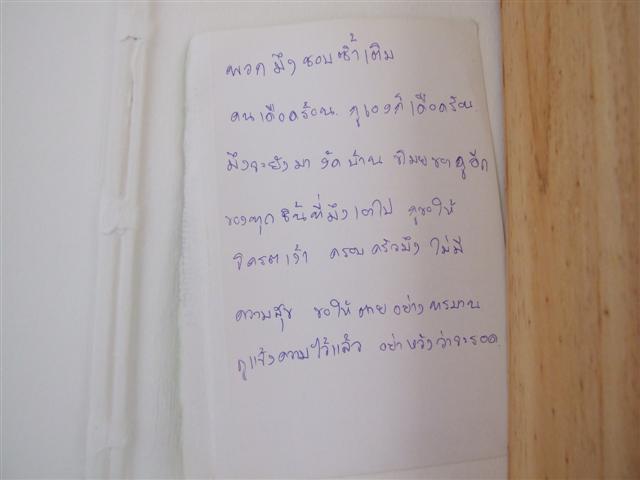 พวกมึงชอบซ้ำเติม
คนเดือดร้อน กูเองก็เดือดร้อน
มึงจะยังมา งัด บ้าน ขโมยของกูอีก
ของทุกชิ้นที่มึงเอาไป กูขอให้
ครอบครัวมึง ไม่มี
ความสุข ขอให้ตายอย่างทรมาน
กูแจ้งความไว้แล้ว อย่าหวังว่าจะรอด